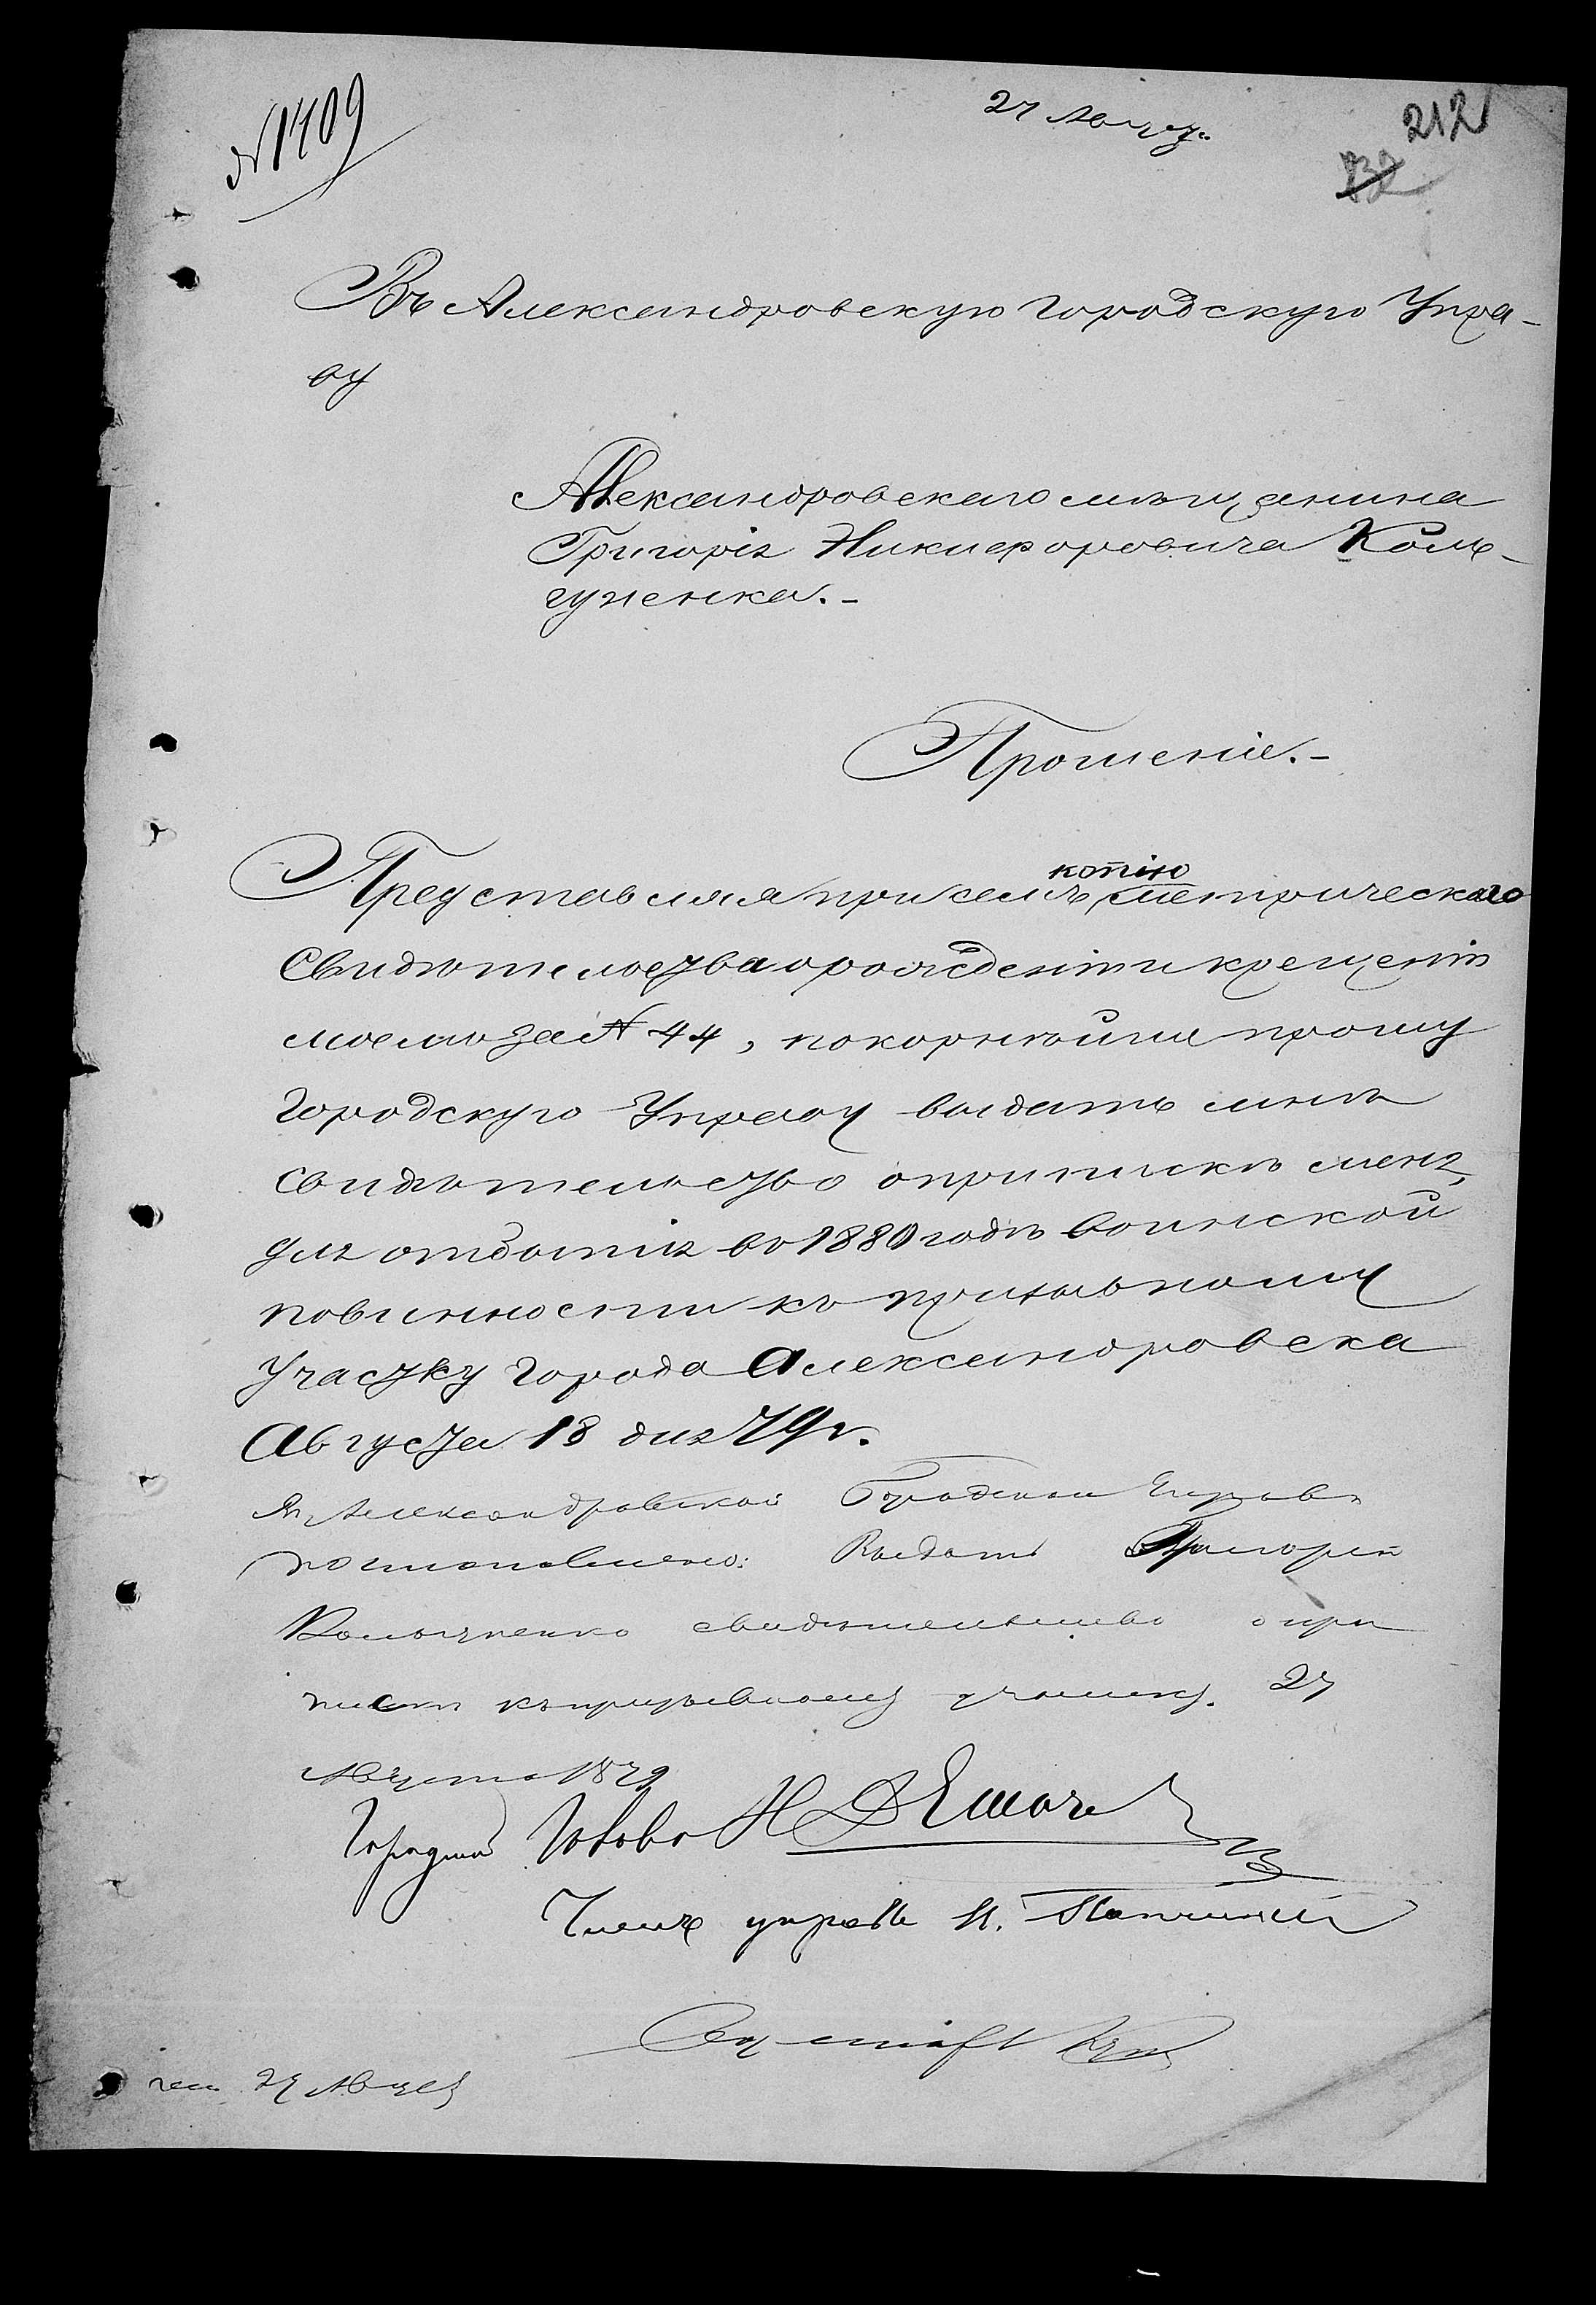 № 1409
27 Авгу.
212
132
Въ Александровскую Городскую Упра-
ву
Александровскаго мѣщанина
Григорія Никифоровича Коль-
чуненка.-
Прошеніе.-
копію
Представляя при семъ метрическаго
Свидѣтельства о рожденіи и крещеніи
моемъ за № 44, покорнѣйше прошу
Городскую Управу выдать мнѣ
Свидѣтельство о припискѣ меня,
для отбытія въ 1880 годѣ воинской
повинности къ призывному
участку города Александровска
Августа 18 дня 79 г.
Въ Александровской Городской Управѣ
постановлено: Выдать Григорію
Кольчуненко свидѣтельство о при
пискѣ къ призывному участку. 27
Августа 1879
Городской Голова Н Д
Членъ управы И.
27 Август